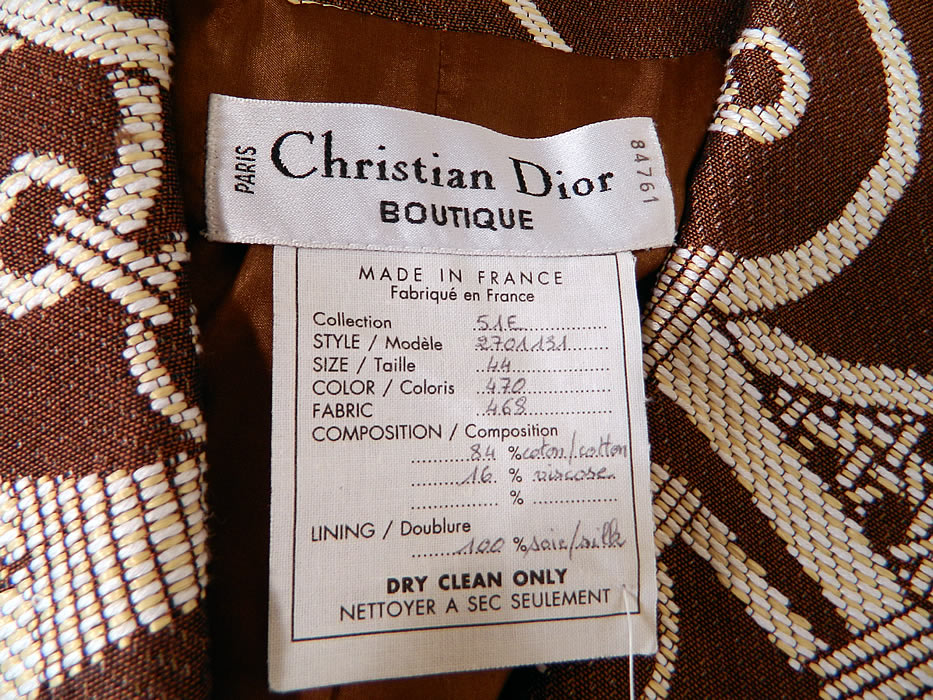 PARIS
Christian Dior
BOUTIQUE
84761
MADE IN FRANCE
Fabriqué en France
Collection 51E
STYLE / Modèle 2701131
SIZE / Taille 44
COLOR / Coloris 470
FABRIC 468
COMPOSITION / Composition
84 % coton/cotton
16. % viscose
%
LINING / Doublure
100 % soie/silk
DRY CLEAN ONLY
NETTOYER A SEC SEULEMENT